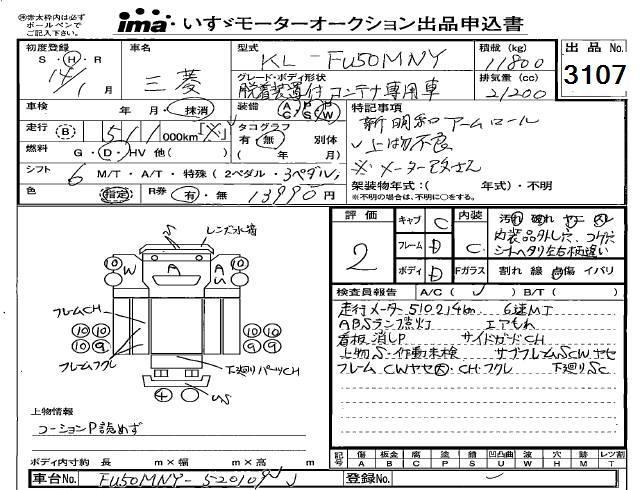 ※赤太枠内は必ずボールペンでご記入下さい。
ima いすゞモーターオークション出品申込書
初度登録 S・H・R 14/1 月
車名 三菱
型式 KL-FU50MNY
グレード・ボディ形状 脱着装置付コンテナ専用車
積載 (kg) 11800
排気量 (cc) 21200
出品 No. 3107
車検 年 月・抹消
装備 AC PS PW
特記事項
新明和アームロール
上物不良
※メーター改ざん
走行 B 511 000km
タコグラフ 有・無 別体
( 年 月)
燃料 G・D・HV 他( )
シフト 6 M/T・A/T・特殊 (2ペダル・3ペダル)
架装物年式:( 年式)・不明
※不明の場合は、不明に○をする。
色 指定 R券 有・無 13990円
評価 2
キャブ C
フレーム D
ボディ D
内装 C
Fガラス
汚れ 破れ ヤニ スレ
内装品外し穴、コゲ穴
シートヘタリ左右柄違い
割れ 線 点傷 イバリ
検査員報告 A/C( ) B/T( )
走行メーター510214km 6速MT
ABSランプ点灯 エアもれ
看板消しP サイドガードCH
上物S・作動未検 サブフレームSCWヤセ
フレーム CWヤセ大・CH・フクレ 下廻りSC
S レンズ水滴
W A A A U
フレームCH
フレームフクレ
10 10 10 10 10 9 10 9
下廻りパーツCH
4 US
上物情報
コーションP読めず
ボディ内寸約 長 m×幅 m×高 m
記号 傷A 板金B 腐C 塗P 錆S 凹凸曲U 波W 穴H 時M レツ割T
車台No. FU50MNY-520109
登録No.